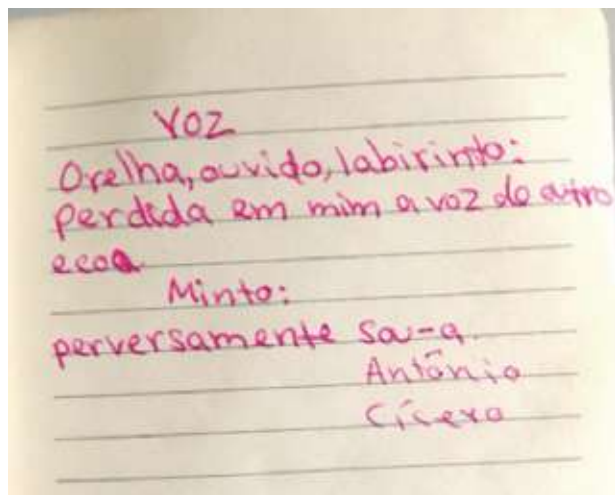 VOZ
Orelha, ouvido, labirinto:
perdida em mim a voz do outro
ecoa
Minto:
perversamente sou-a.
Antônio
Cícero